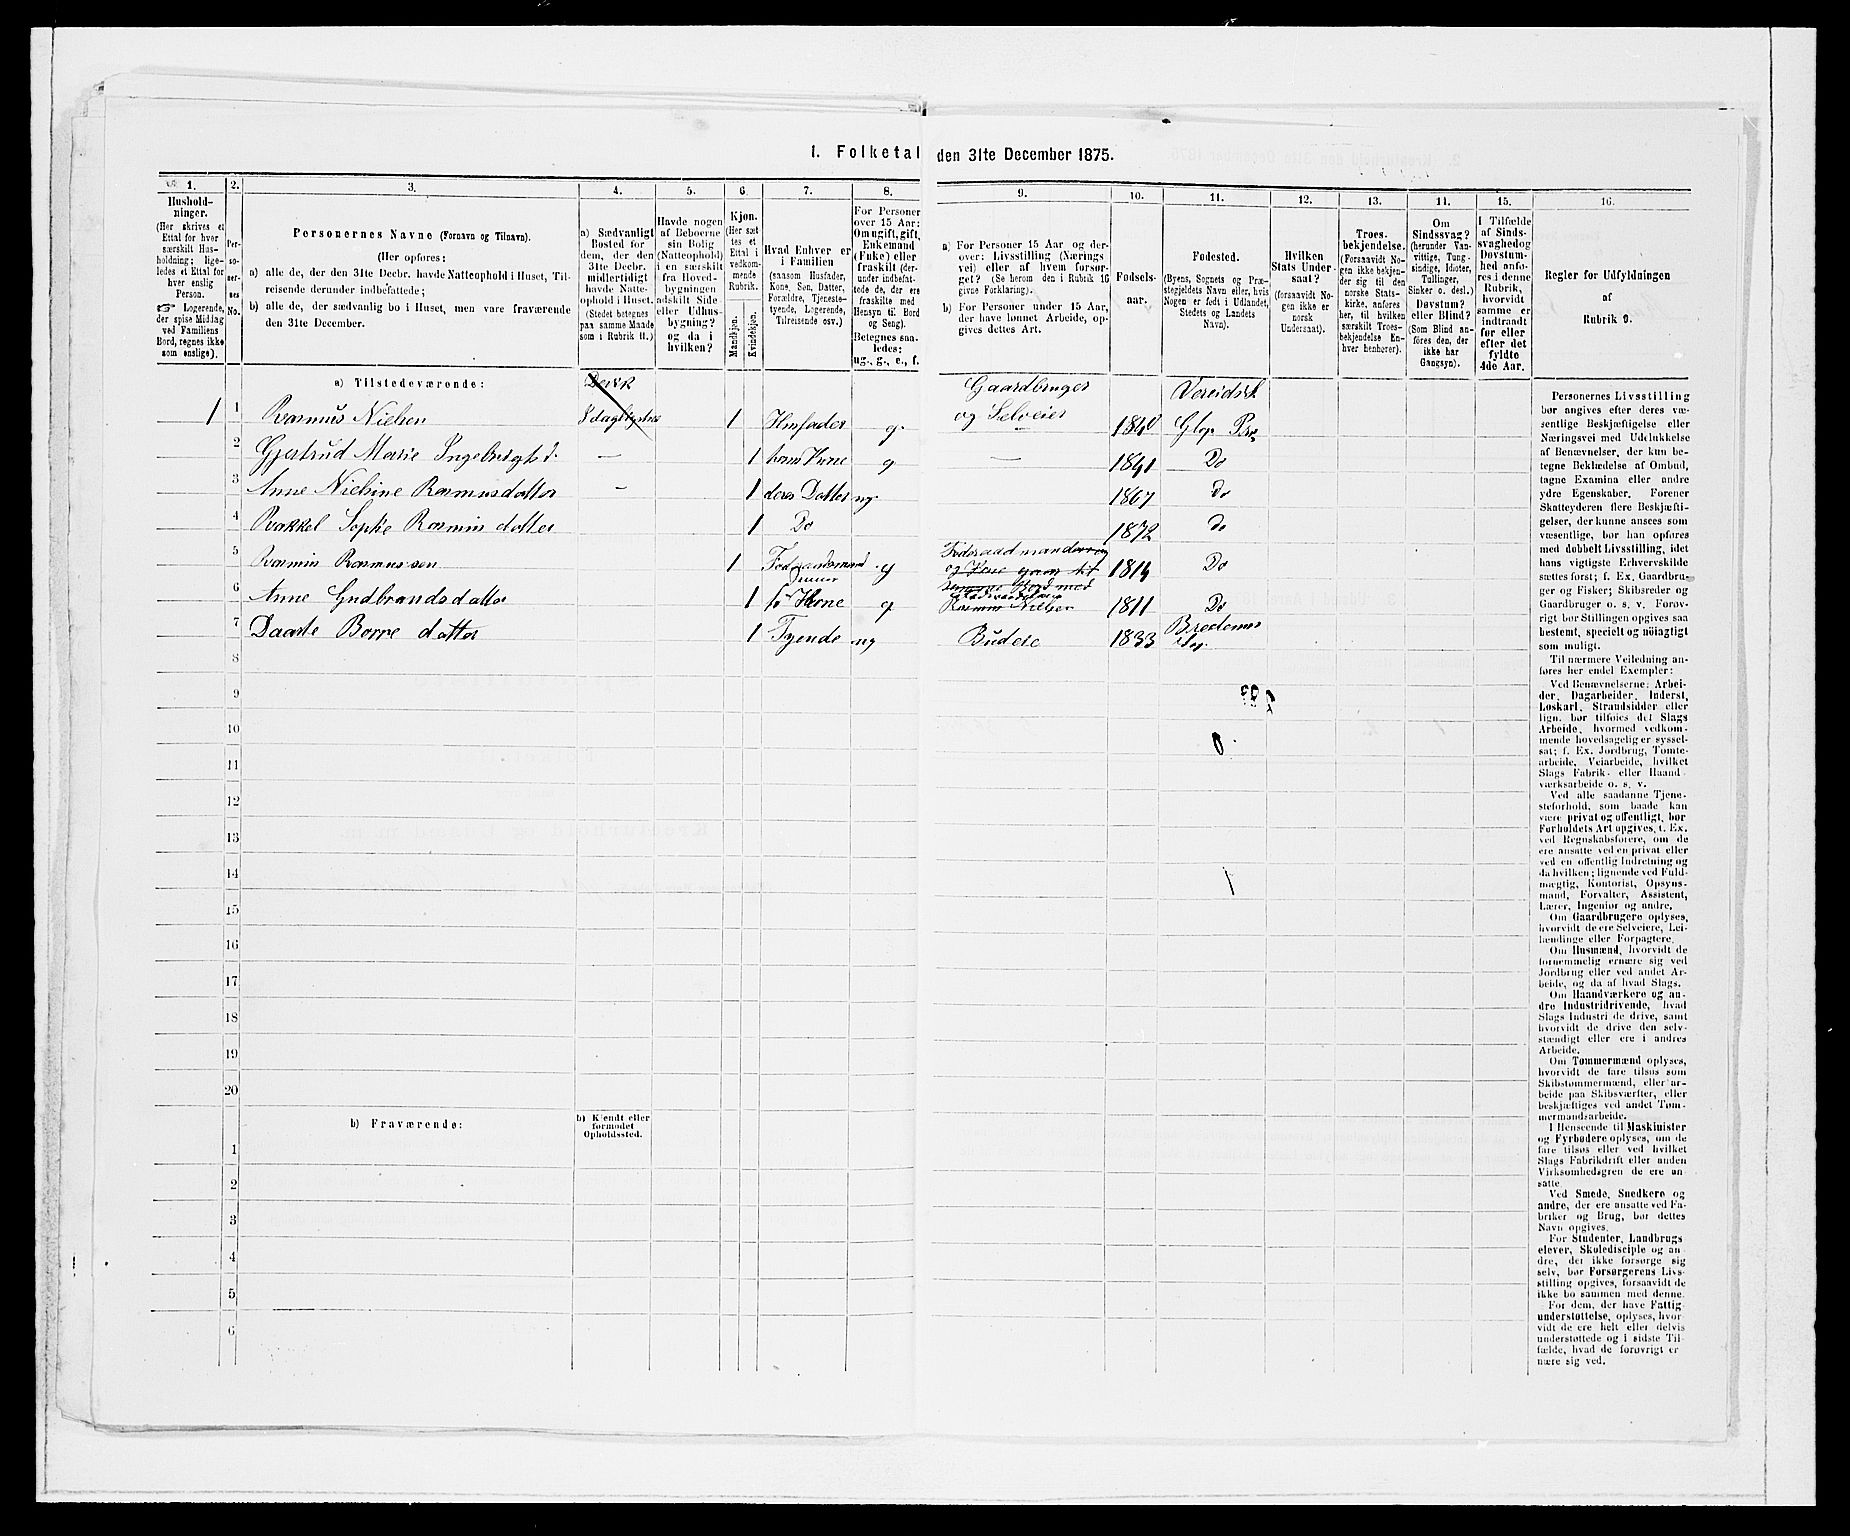 I. Folketal den 31te December 1875.
1. 2. 3. 4. 5. 6. 7. 8. 9. 10. 11. 12. 13. 14. 15. 16.
Hushold-
ninger.
(Her skrives et
Ettal for hver
særskilt Hus-
holdning; lige-
ledes et Ettal for
hver enslig
Person.
Logerende,
der spise Middag
ved Familiens
Bord, regnes ikke
som enslige).
Per-
so-
ner-
nes
No.
Personernes Navne (Fornavn og Tilnavn).
(Her opføres:
a) alle de, der den 31te Decbr. havde Natteophold i Huset, Til-
reisende derunder indbefattede;
b) alle de, der sædvanlig bo i Huset, men vare fraværende
den 31te December.
a) Sædvanligt
Bosted for
dem, der den
31te Decbr.
midlertidigt
havde Natte-
ophold i Huset.
(Stedet betegnes
paa samme Maade
som i Rubrik 11.)
Havde nogen
af Beboerne
sin Bolig
(Natteophold)
i en særskilt
fra Hoved-
bygningen
adskilt Side-
eller Udhus-
bygning?
og da i
hvilken?
Kjøn.
(Her sæt-
tes et
Ettal i
vedkom-
mende
Rubrik.
Mandkjøn.
Kvindekjøn.
Hvad Enhver er
i Familien
(saasom Husfader,
Kone, Søn, Datter,
Forældre, Tjeneste-
tyende, Logerende,
Tilreisende osv.)
For Personer
over 15 Aar:
Om ugift, gift,
Enkemand
(Enke) eller
fraskilt (der-
under indbefat-
tede de, der ere
fraskilte med
Hensyn til Bord
og Seng).
Betegnes saa-
ledes:
ug., g., e., f.
a) For Personer 15 Aar og der-
over: Livsstilling (Nærings-
vei) eller af hvem forsør-
get? (Se herom den i Rubrik 16
givne Forklaring).
b) For Personer under 15 Aar,
der have lønnet Arbeide, op-
gives dettes Art.
Fødsels-
aar.
Fødested.
(Byens, Sognets og Præ-
stegjeldets Navn eller, hvis
Nogen er født i Udlandet,
Stedets og Landets
Navn).
Hvilken
Stats Under-
saat?
(forsaavidt No-
gen ikke er
norsk
Undersaat).
Troes-
bekjendelse.
(Forsaavidt No-
gen ikke bekjen-
der sig til den
norske Stats-
kirke, anføres
her, til hvilken
særskilt Troes-
bekjendelse En-
hver henhører).
Om
Sindssvag?
(herunder Van-
vittige, Tung-
sindige, Idioter,
Tullinger,
Sinker o. desl.)
Døvstum?
eller Blind?
(Som Blind an-
føres den, der
ikke har
Gangsyn).
I Tilfælde
af Sinds-
svaghed og
Døvstum-
hed anfø-
res i denne
Rubrik,
hvorvidt
samme er
indtraadt
før eller
efter det
fyldte
4de Aar.
Regler for Udfyldningen
af
Rubrik 9.
a) Tilstedeværende:
1 1 Rasmus Nielsen 1 Husfader g. Gaardbruger og Selveier 1840
2 Gjertrud Marie Ingebrigtsd. — 1 hans Kone g — 1841 Do
3 Anne Nielsine Rasmusdatter — 1 deres Datter ug. 1867 Do
4 Rakkel Sophie Rasmus datter 1 Do 1872 Do
5 Rasmus Rasmussen 1 g 1814 Do
6 Anne Gudbrandsdatter 1 Kone g Rasmus Nielsen 1811 Do
7 Daarte Børre datter 1 Tyende ug Budeie 1833
8
9
10
11
12
13
14
15
16
17
18
19
20
b) Fraværende:
b) Kjendt eller
formodet
Opholdssted.
1
2
3
4
5
6
Personernes Livsstilling
bør angives efter deres væ-
sentlige Beskjæftigelse eller
Næringsvei med Udelukkelse
af Benævnelser, der kun be-
tegne Beklædelse af Ombud,
tagne Examina eller andre
ydre Egenskaber. Forener
Skatteyderen flere Beskjæfti-
gelser, der kunne ansees som
væsentlige, bør han opføres
med dobbelt Livsstilling, idet
hans vigtigste Erhvervskilde
sættes først; f. Ex. Gaardbru-
ger og Fisker; Skibsreder og
Gaardbruger o. s. v. Forøv-
rigt bør Stillingen opgives saa
bestemt, specielt og nöiagtigt
som muligt.
Til nærmere Veiledning an-
føres her endel Exempler:
Ved Benævnelserne: Arbei-
der, Dagarbeider, Inderst,
Løskarl, Strandsidder eller
lign. bør tilføies det Slags
Arbeide, hvormed vedkom-
mende hovedsagelig er syssel-
sat; f. Ex. Jordbrug, Tømte-
arbeide, Veiarbeide, hvilket
Slags Fabrik- eller Haand-
værksarbeide o. s. v.
Ved alle saadanne Tjene-
steforhold, som baade kan
være privat og offentligt, bør
Forholdets Art opgives, t. Ex.
ved Regnskabsførere, om de
ere ansatte ved en privat eller
ved en offentlig Indretning og
da hvilken; lignende ved Fuld-
mægtig, Kontorist, Opsyns-
mand, Forvalter, Assistent,
Lærer, Ingeniør og andre.
Om Gaardbrugere oplyses,
hvorvidt de ere Selveiere, Lei-
lændinge eller Forpagtere.
Om Husmænd, hvorvidt de
fornemmelig ernære sig ved
Jordbrug eller ved andet Ar-
beide, og da af hvad Slags.
Om Haandværkere og an-
dre Industridrivende, hvad
Slags Industri de drive, samt
hvorvidt de drive den selv-
stændigt eller ere i andres
Arbeide.
Om Tømmermænd oplyses,
hvorvidt de fare tilsøs som
Skibstømmermænd, eller ar-
beide paa Skibsværfter, eller
beskjæftiges ved andet Tøm-
mermandsarbeide.
I Henseende til Maskinister
og Fyrbødere oplyses, om de
fare tilsøs eller ved hvilket
Slags Fabrikdrift eller anden
Virksomhedsgren de ere an-
satte.
Ved Smede, Snedkere og
andre, der ere ansatte ved Fa-
briker og Brug, bør dettes
Navn opgives.
For Studenter, Landbrugs-
elever, Skoledisciple og an-
dre, der ikke forsørge sig
selv, bør Forsørgerens Livs-
stilling opgives, forsaavidt de
ikke bo sammen med denne.
For dem, der have Fattig-
understøttelse, oplyses, hvor-
vidt de ere helt eller delvis
understøttede og i sidste Til-
fælde, hvad de forøvrigt er-
nære sig ved.